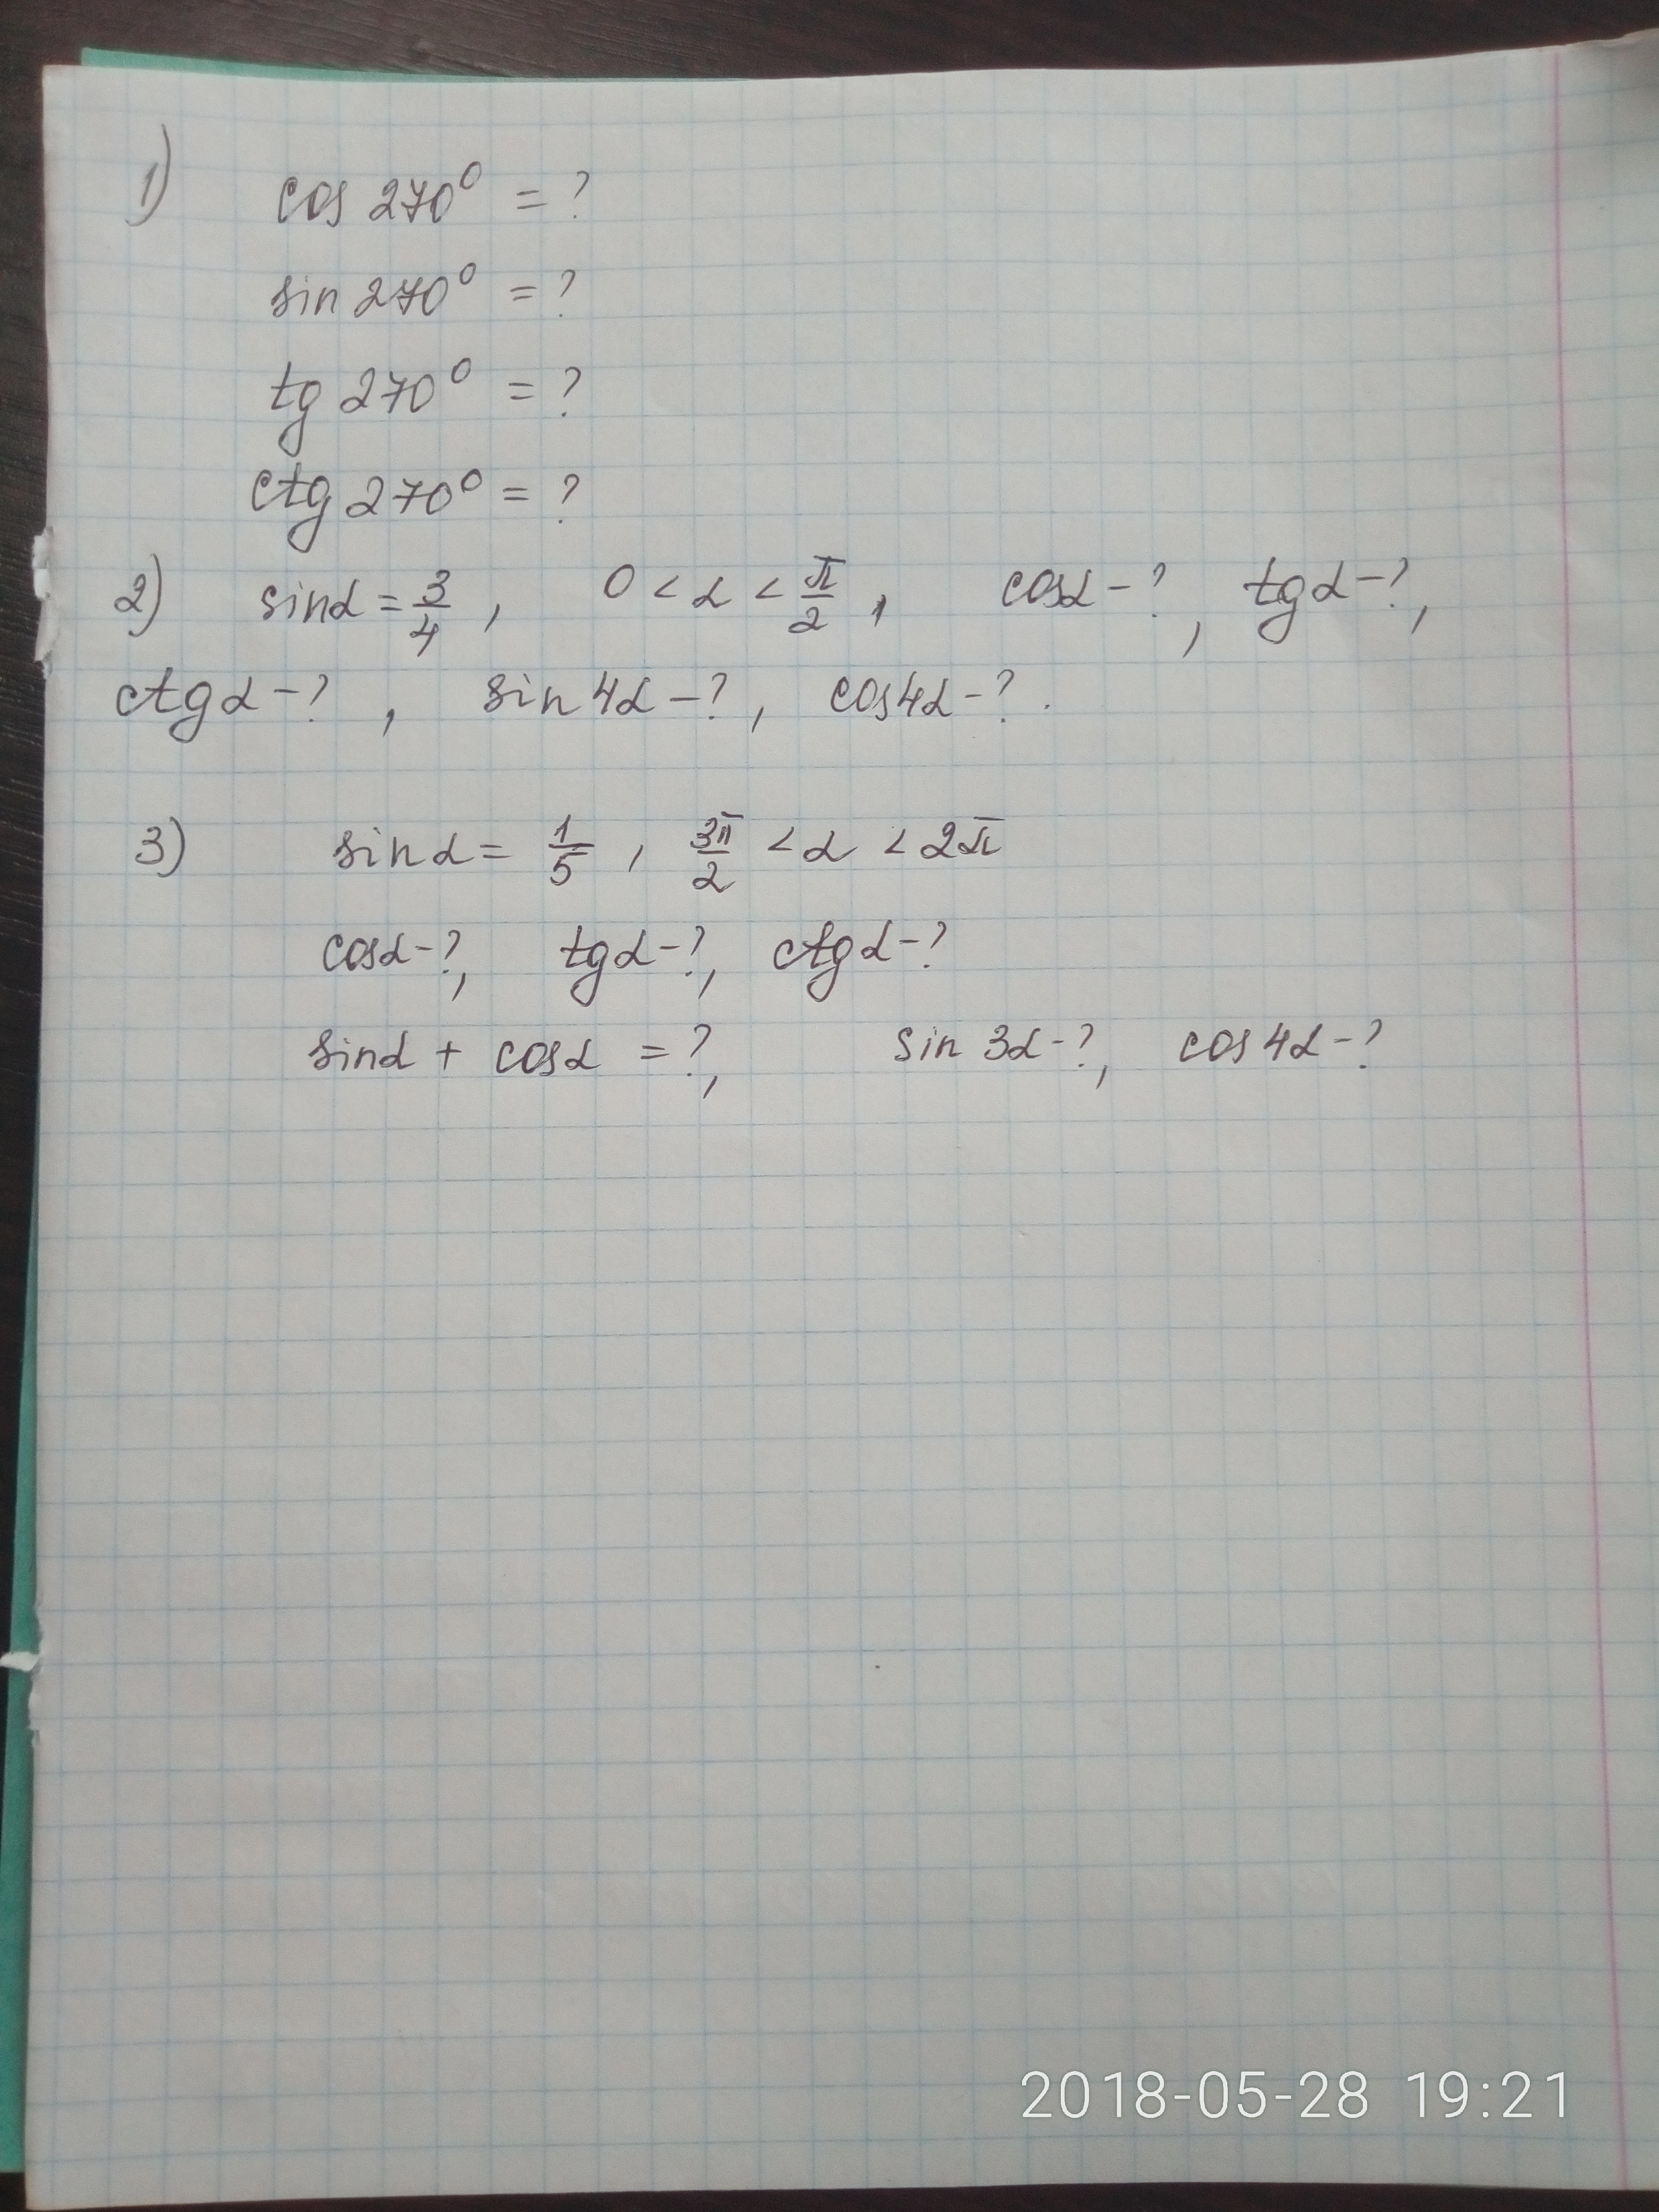 1) cos 270° = ?
sin 270° = ?
tg 270° = ?
ctg 270° = ?
2) sinα = 3/4 , 0 < α < π/2 , cosα - ? , tgα - ? ,
ctgα - ? , sin 4α - ? , cos4α - ? .
3) sinα = 1/5 , 3π/2 < α < 2π
cosα - ?, tgα - ?, ctgα - ?
sinα + cosα = ?, sin 3α - ?, cos 4α - ?
2018-05-28 19:21